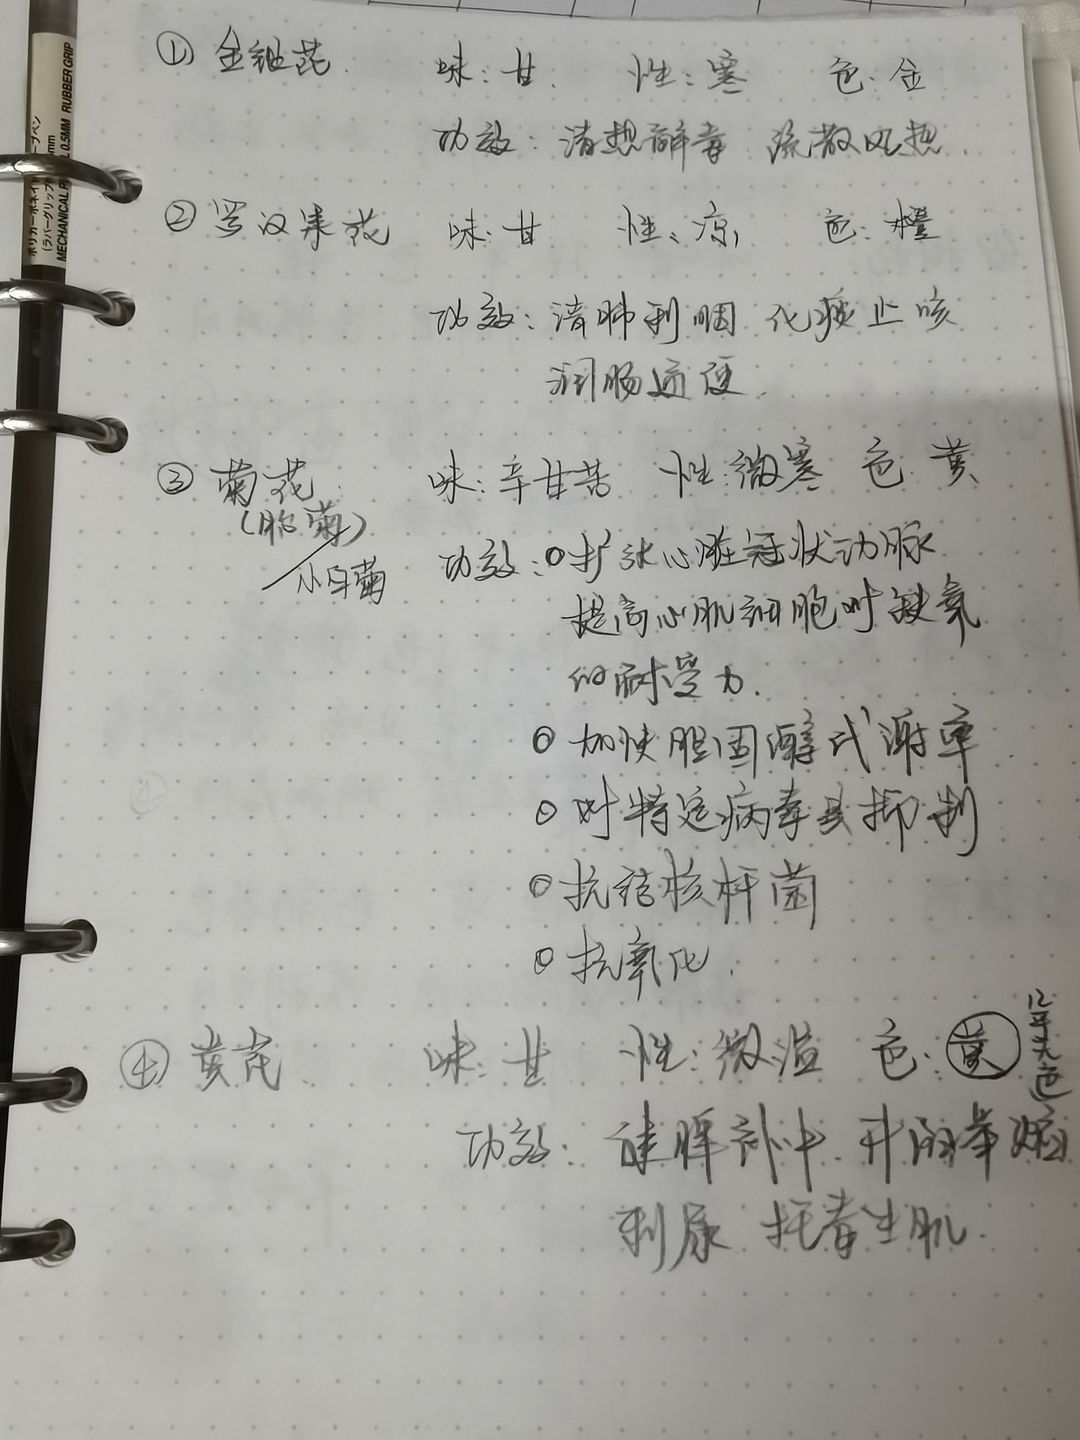 MECHANICAL P L 0.5MM RUBBER GRIP
① 金银花 味:甘. 性:寒 色:金
功效:清热解毒 疏散风热.
② 罗汉果花 味:甘 性:凉 色:橙
功效:清肺利咽 化痰止咳
润肠通便.
③ 菊花. 味:辛甘苦 性:微寒 色 黄
(胎菊)
小白菊
功效:○扩张心脏冠状动脉
提高心肌细胞对缺氧
的耐受力.
○ 加快胆固醇代谢率
○ 对特定病毒具抑制
○ 抗结核杆菌
○ 抗氧化.
④ 黄芪 味:甘 性:微温 色:黄
功效: 健脾补中. 升阳举陷
利尿 托毒生肌.